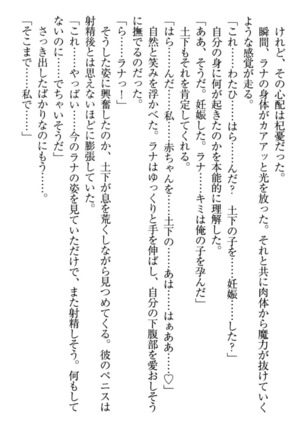 けれど、その心配は杞憂だった。
瞬間、ラナの身体がカアアッと光を放った。それと共に肉体から魔力が抜けていく
ような感覚が走る。
「これ……わたひ……はら……んだ？　土下の子を……妊娠……した？」
自分の身に何が起きたのかを本能的に理解した。
「ああ、そうだ。妊娠した。ラナ……キミは俺の子を孕んだ」
土下もそれを肯定してくれる。
「はら……んだ……私……赤ちゃんを……土下の……あは……はぁああ……♡」
自然と笑みを浮かべた。ラナはゆっくりと手を伸ばし、自分の下腹部を愛おしそう
に撫でるのだった。
「ら……ラナっ！」
そうした姿に興奮したのか、土下が息を荒くしながら見つめてくる。彼のペニスは
射精後とは思えないほどに膨張していた。
「これ……やっばい……今のラナの姿を見ていただけで、また射精しそう。何もして
ないのに……でちゃいそうだ」
さっき出したばかりなのにもう……。
「そこまで……私で……」